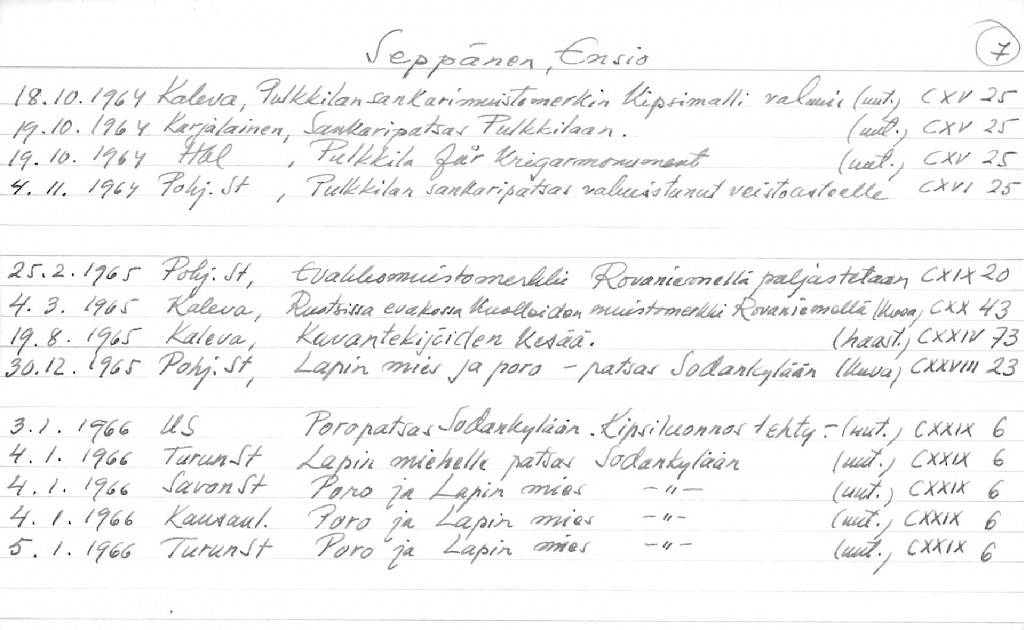 Seppänen, Ensio 7
18.10.1964 Kaleva, Pulkkilan sankarimuistomerkin kipsimalli valmis (uut.) CXV 25
19.10.1964 Karjalainen, Sankaripatsas Pulkkilaan. (uut.) CXV 25
19.10.1964 Hbl , Pulkkila får krigarmonument (uut.) CXV 25
4.11.1964 Pohj.St , Pulkkilan sankaripatsas valmistunut veistoasteelle CXVI 25
25.2.1965 Pohj.St, Evakkomuistomerkki Rovaniemellä paljastetaan CXIX 20
4.3.1965 Kaleva, Ruotsissa evakossa kuolleiden muistomerkki Rovaniemellä (kuva) CXX 43
19.8.1965 Kaleva, Kuvantekijöiden kesää. (haast.) CXXIV 73
30.12.1965 Pohj.St, Lapin mies ja poro - patsas Sodankylään (kuva) CXXVIII 23
3.1.1966 US Poropatsas Sodankylään. Kipsiluonnos tehty - (uut.) CXXIX 6
4.1.1966 TurunSt Lapin miehelle patsas Sodankylään (uut.) CXXIX 6
4.1.1966 SavonSt Poro ja Lapin mies -"- (uut.) CXXIX 6
4.1.1966 Kansanl. Poro ja Lapin mies -"- (uut.) CXXIX 6
5.1.1966 TurunSt Poro ja Lapin mies -"- (uut.) CXXIX 6